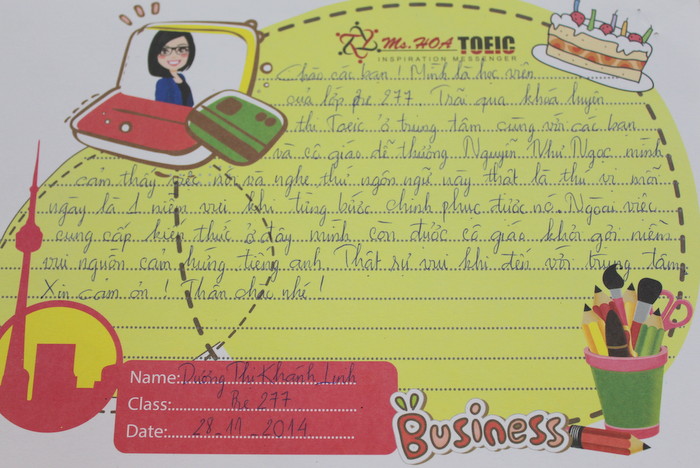 Ms. HOA TOEIC
INSPIRATION MESSENGER
Chào các bạn ! Mình là học viên
của lớp Pre 277. Trải qua khoá luyện
thi Toeic ở trung tâm cùng với các bạn
và cô giáo dễ thương Nguyễn Như Ngọc mình
cảm thấy việc nói và nghe thứ ngôn ngữ này thật là thú vị mỗi
ngày là 1 niềm vui khi từng bước chinh phục được nó. Ngoài việc
cung cấp kiến thức ở đây mình còn được cô giáo khơi gợi niềm
vui nguồn cảm hứng tiếng anh. Thật sự vui khi đến với trung tâm
Xin cảm ơn ! Thân chào nhé !
Name: Dương Thị Khánh Linh
Class: Pre 277
Date: 28.11.2014
Business